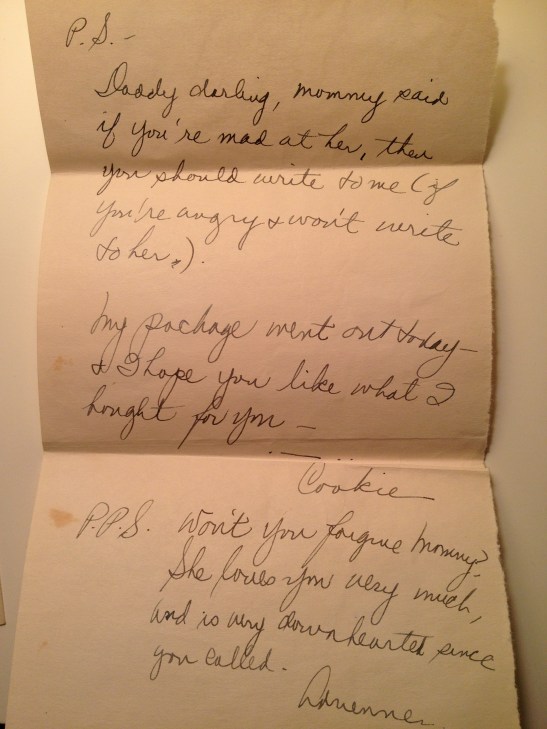 P.S. -
Daddy darling, mommy said
if you're mad at her, then
you should write to me (if
you're angry & won't write
to her.).
My package went out today -
& I hope you like what I
bought for you -
Cookie
P.P.S. Won't you forgive Mommy?
She loves you very much,
and is very downhearted since
you called.
Adrienne